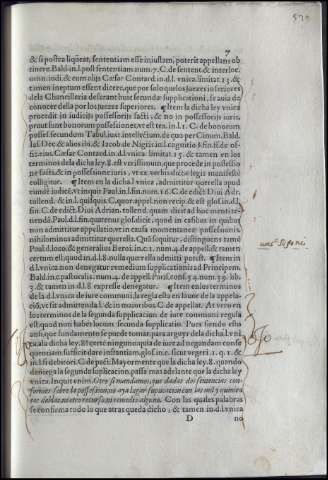 7
& si postea liqueat, sententiam esse iniustam, poterit appellans ob
tinere. Bald. in l. post sententiam num. 7. C. de sentent. & interloc.
omn. iudi. & cum alijs Cæsar Contard. in d. l. vnica. limitat. 15. &
tamen ineptum esset dicere, que por solo que los juezes inferiores
dela Chancilleria desirant huic secundæ supplicationi, se auia de
conocer della por los juezes superiores. ¶ Item la dicha ley vnica
procedit in iudicijs possessorijs facti; & no in possessorijs iuris,
prout sunt bonorum possessiones, vt est tex. in l. 1. C. de bonorum
possess. secundum Tabul. iuxt. intellectum de quo per Cinum. Bald.
Ias. Dec. & alios ibi, & Iacob. de Nigris in l. cognitio §. fin. ff. de of-
fic. eius. Cæsar. Contard. in d. l. vnica. limitat. 15. & tamen en los
terminos dela dicha ley. 8. est verissimum, que procede in possessio
ne facti, & in possessione iuris, vt ex verbis dictæ legis manifeste
colligitur. ¶ Item en la dicha l. vnica, admittitur querella apud
eundē iudicē. vt inquit Paul. in l. fin. num. 16. C. de edict. Diui Adri.
tollend. & in l. quisquis C. quor. appel. non recip. & est glos. in d. l.
fin. C. de edict. Diui Adrian. tollend. quam dicit ad hoc menti te-
nendā. Paul. d. l. fin. quærenus glos. dicit, quod in casibus in quibus
non admittitur appellatio, vt in causa momentaneæ possessionis
nihilominus admittitur querella. Quā sequitur, distinguens tamē
Paul. d. loco; & generalius Beroi. inc. 1. num. 4. de appellat. & tamē
certum est, quod in d. l. 8. nulla querella admitti potest. ¶ Item in
d. l. vnica non denegatur remedium supplicationis ad Principem.
Bald. inc. pastoralis. num. 4. de appell. Puteus conf. 54. num. 39. lib.
2. & tamen in. d. l. 8 expresse denegatur. ¶ Item en los terminos
de la d. l. vnica de iure communi, la regla est en fauor de la appela-
ciō, vt sit admittenda l. & in maioribus C. de appellat. At vero en
los terminos de la segunda supplicacion de iure communi regula
est quod non habet locum secunda supplicatio. Pues siendo esto
asi, que fundamento se puede tomar, para arguyr dela dicha l. vni
ca ala dicha ley. 8? quod ninguna iuga de iure ad negandam conse
quentiam sufficit dare instantiam glos. inc. sicut vrgeri 1. q. 1. &
in l. si debitori. C. de pact. Mayormente que la dicha ley. 8. quando
denega la segunda supplicacion, passa mas adelante que la dicha ley
vnica. In quit enim. Otro si mandamos, que dadas dos sentencias con-
formes sobre la possession, no aya lugar suplicacion con las mil y quinien
tas doblas, ni otro recurso, ni remedio alguno. Con las quales palabras
se confirma todo lo que atras queda dicho; & tamen in d. l. vnica
D no